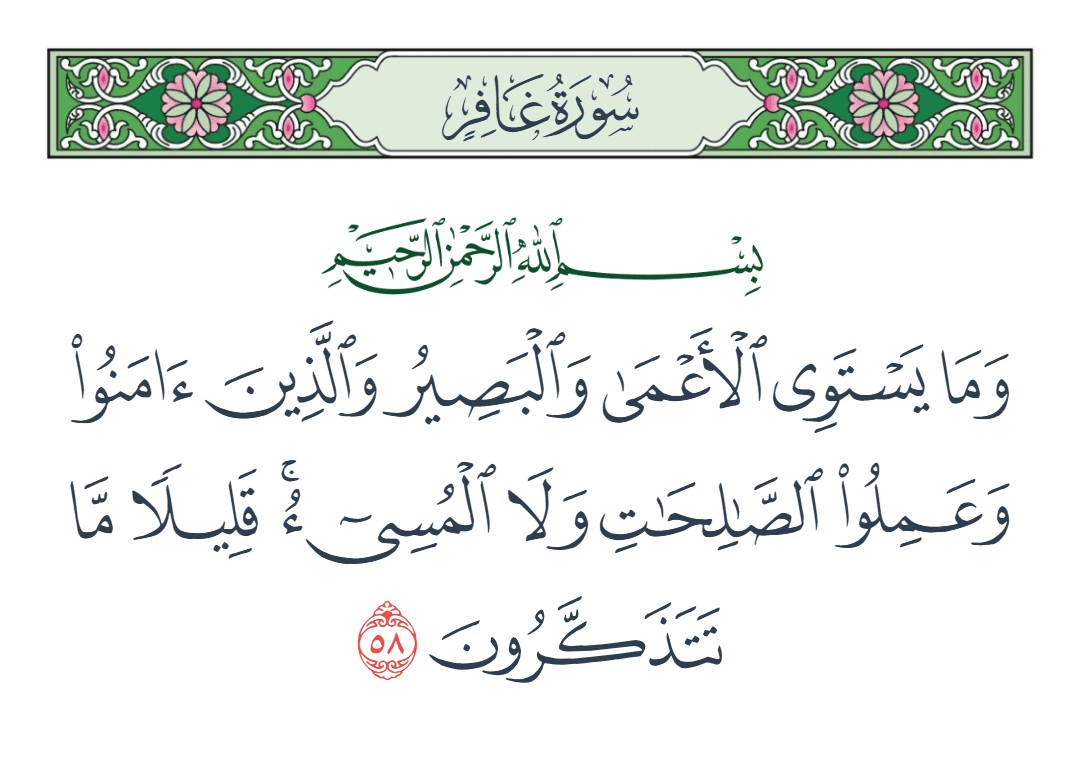 سُورَةُ غَافِرٍ
بِسْمِ ٱللَّهِ ٱلرَّحْمَٰنِ ٱلرَّحِيمِ
وَمَا يَسْتَوِى ٱلْأَعْمَىٰ وَٱلْبَصِيرُ وَٱلَّذِينَ ءَامَنُوا۟
وَعَمِلُوا۟ ٱلصَّٰلِحَٰتِ وَلَا ٱلْمُسِىٓءُ ۚ قَلِيلًا مَّا
تَتَذَكَّرُونَ ٥٨